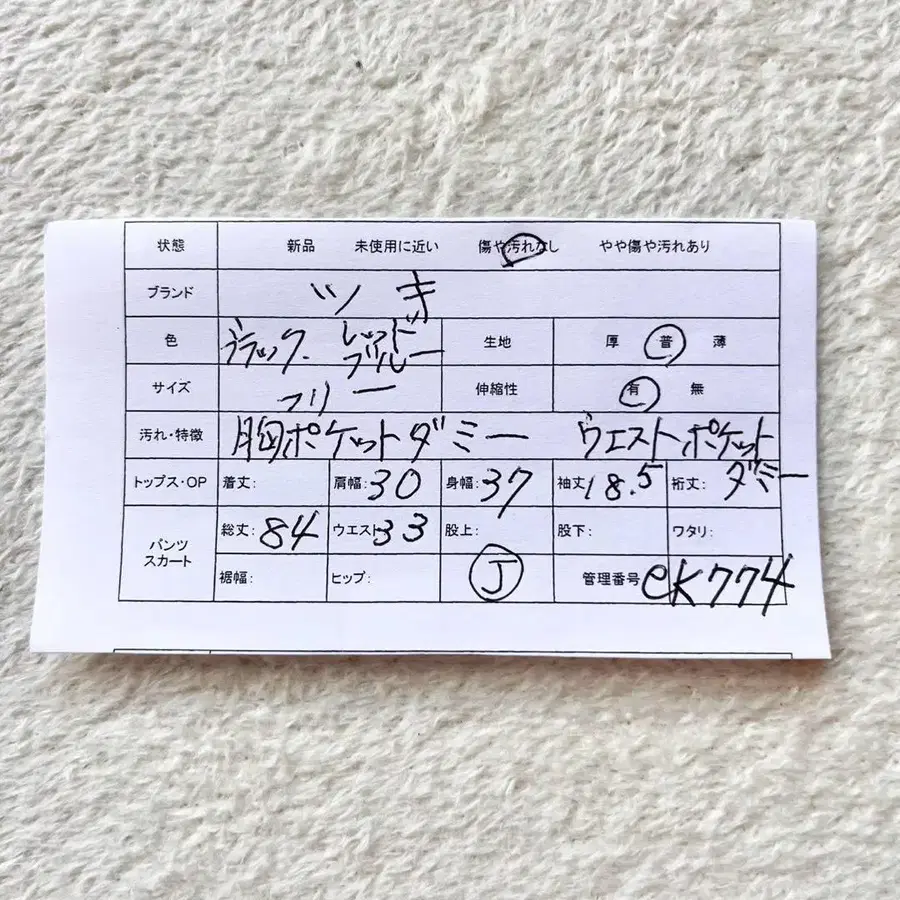 状態 新品 未使用に近い 傷や汚れなし やや傷や汚れあり
ブランド ツキ
色 ブラック レッド ブルー 生地 厚 普 薄
サイズ フリー 伸縮性 有 無
汚れ・特徴 胸ポケットダミー ウエストポケットダミー
トップス・OP 着丈: 肩幅:30 身幅:37 袖丈18.5 裄丈:
パンツ スカート 総丈:84 ウエスト33 股上: 股下: ワタリ:
裾幅: ヒップ: J 管理番号 ek774